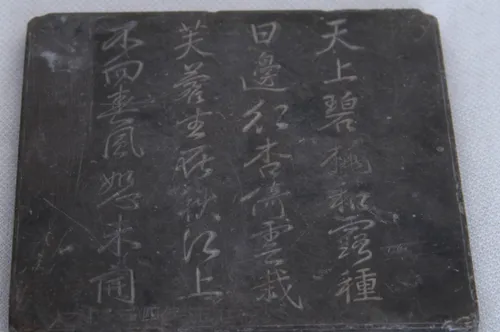 天上碧桃和露種
日邊紅杏倚雲栽
芙蓉生在秋江上
不向春風怨未開